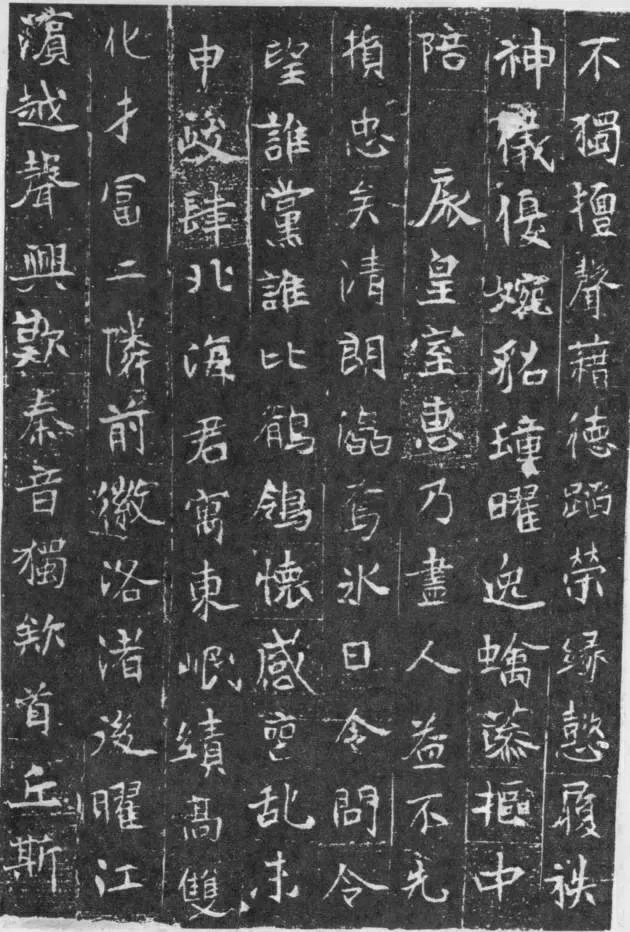 不獨擅聲藉德蹈榮緣懿履袟
神儀優婉貂璫曜逸蟬樞中
陪 扆皇室惠乃盡人益不先
損忠矣清朗焉氷日令問令
望誰黨誰比鶺鴒懷感乱未
申峻肆北海君寓東岷績高雙
化才冨二隣前徽洛渚後曜江
濵越聲興歎秦音獨欵首丘斯